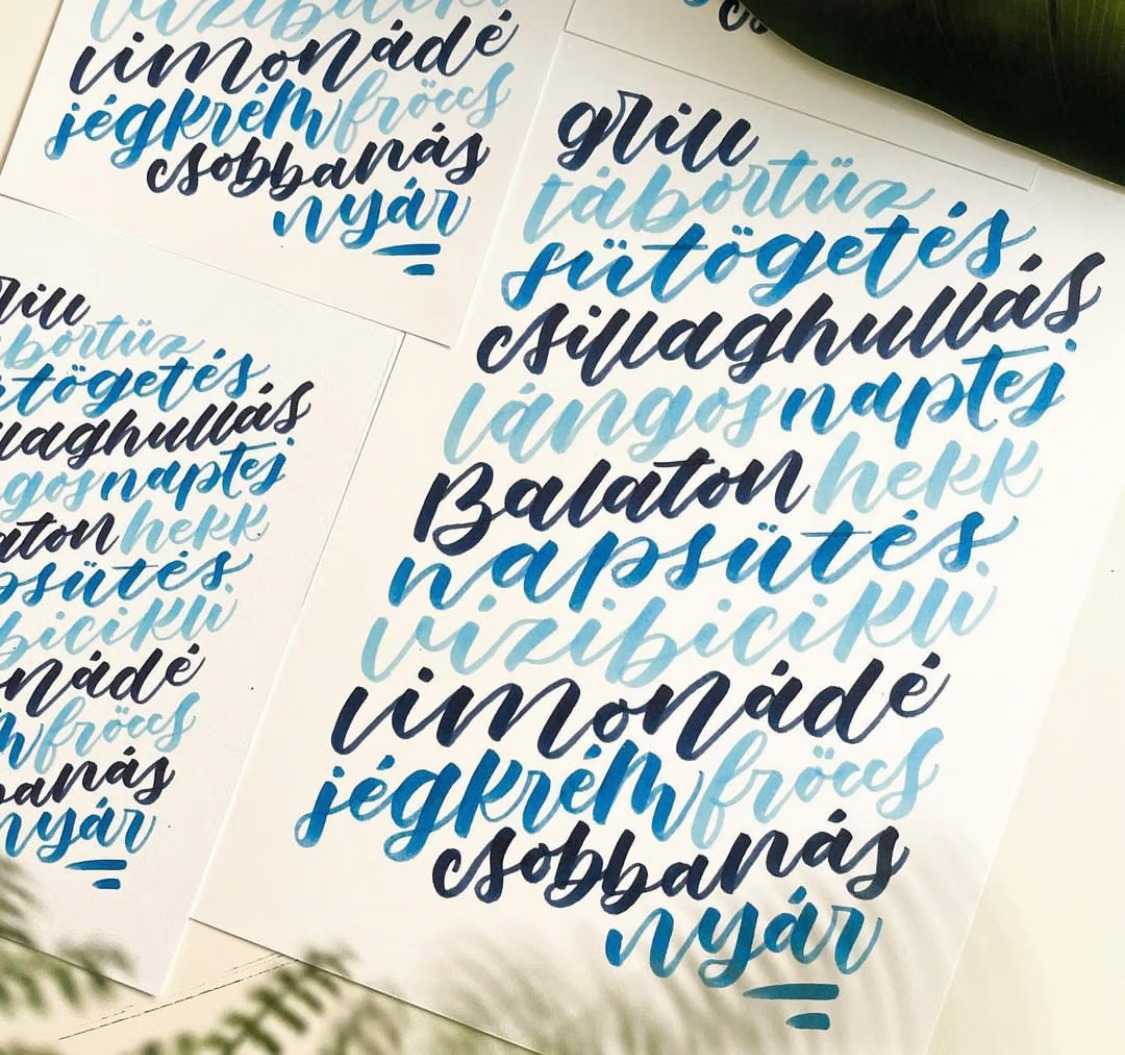 vizibicikli
limonádé
jégkrém fröccs
csobbanás
nyár
grill
tábortűz
sütögetés
csillaghullás
lángos naptej
Balaton hekk
napsütés
vizibicikli
limonádé
jégkrém fröccs
csobbanás
nyár
rill
bortűz
tögetés
llaghullás
gos naptej
aton hekk
psütés
bicikli
nádé
m fröccs
banás
nyár